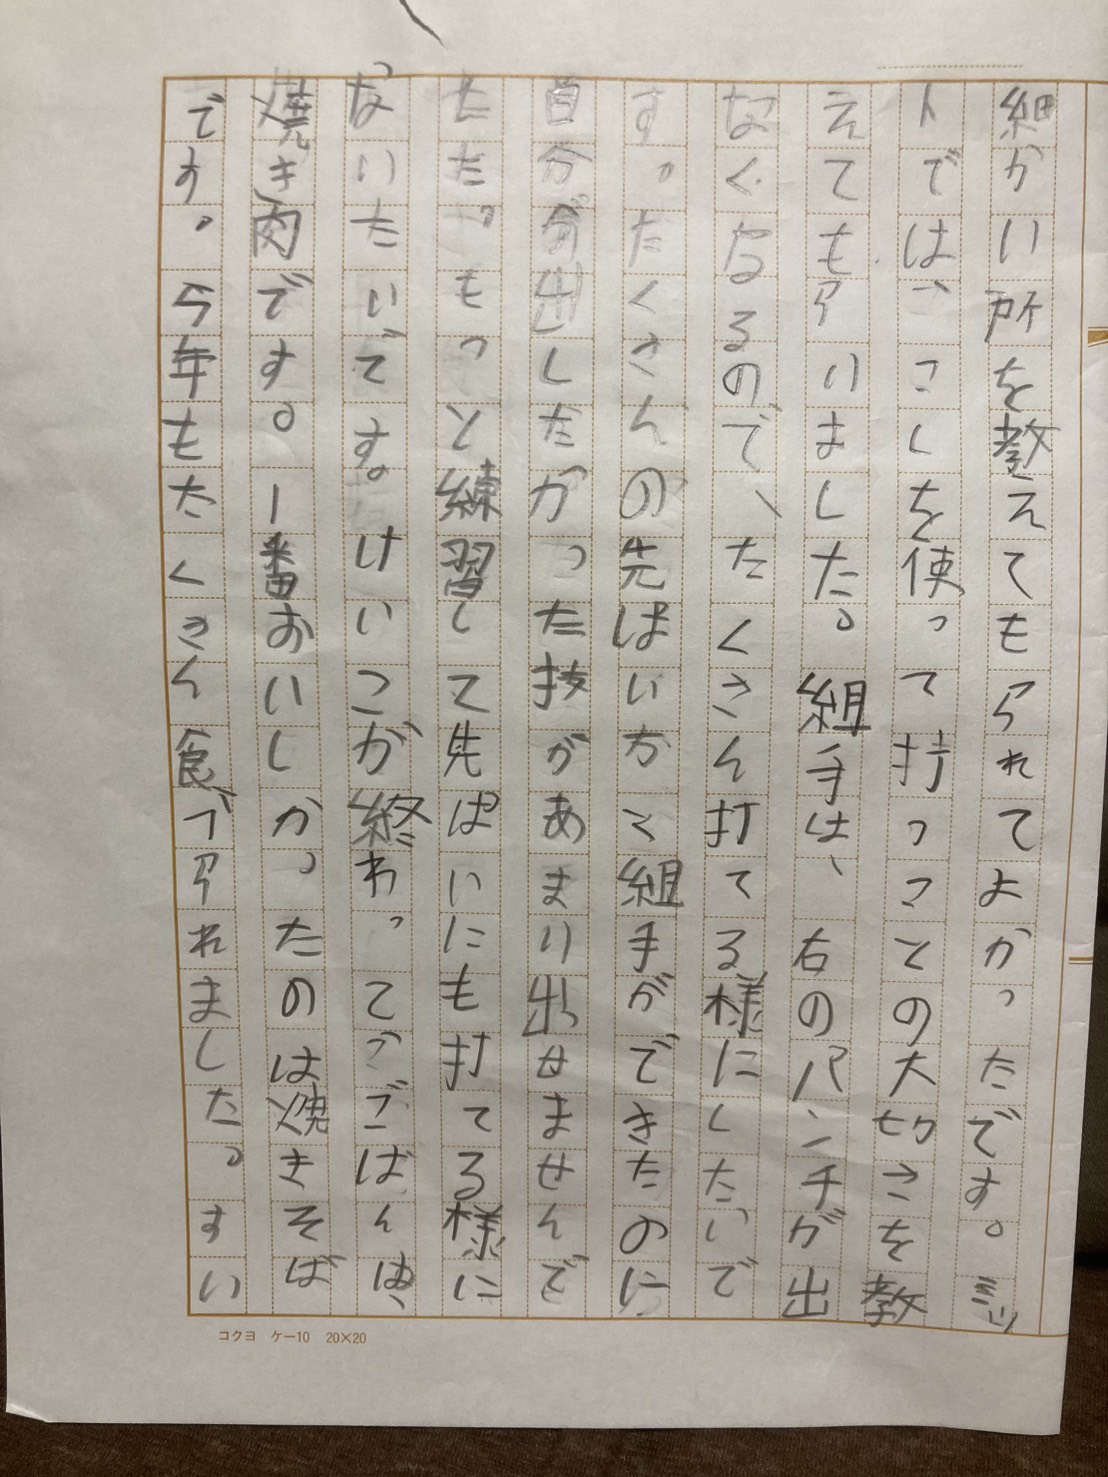 細かい所を教えてもられてよかったです。ミッ
トでは、こしを使って打つことの大切さを教
えてもらいました。組手は、右のパンチが出
なくなるので、たくさん打てる様にしたいで
す。たくさんの先ぱいかく組手ができたのに
自分が出したかった技があまり出せませんで
した。もっと練習して先ぱいにも打てる様に
なりたいです。けいこが終わってごはんは、
焼き肉です。一番おいしかったのは焼きそば
です。今年もたくさん食べられました。すい
コクヨ ケー10 20×20